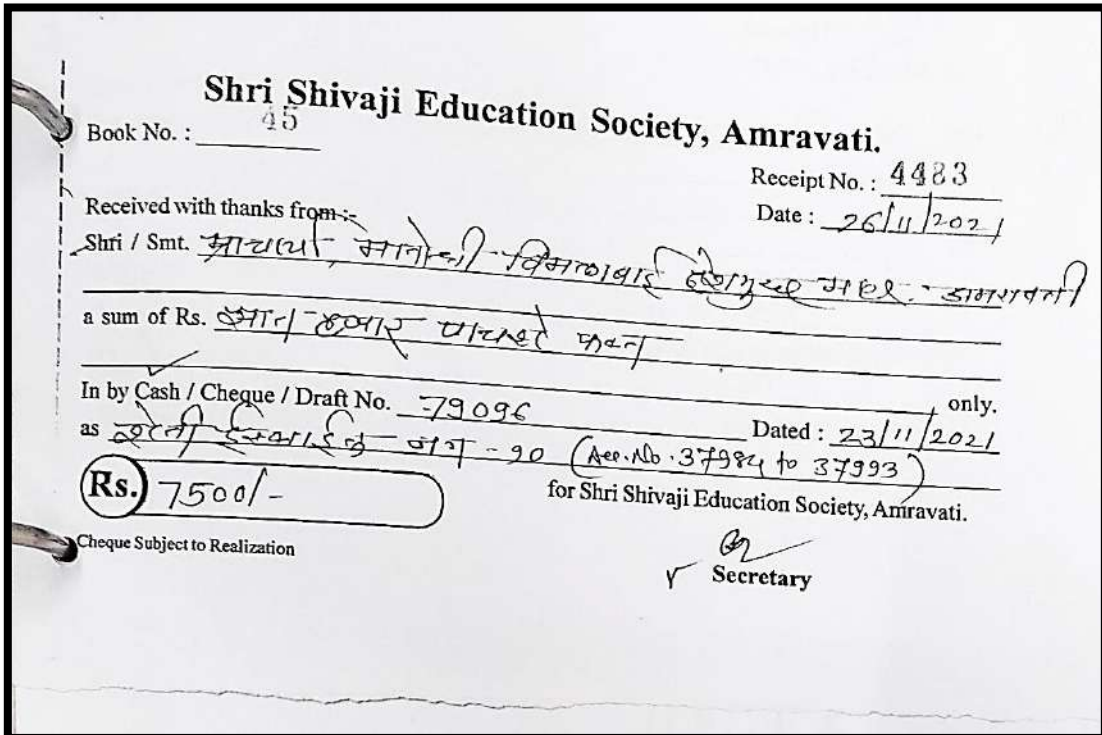 Shri Shivaji Education Society, Amravati.
Book No. : 45
Receipt No. : 4483
Received with thanks from :-
Date : 26/11/2021
Shri / Smt. प्राचार्य, मातोश्री विमलाबाई देशमुख महा. अमरावती
a sum of Rs. सात हजार पाचशे फक्त
In by Cash / Cheque / Draft No. 79096 only.
Dated : 23/11/2021
as नग - 10 (Acc. No. 37984 to 37993)
Rs. 7500/-
for Shri Shivaji Education Society, Amravati.
Cheque Subject to Realization
Secretary